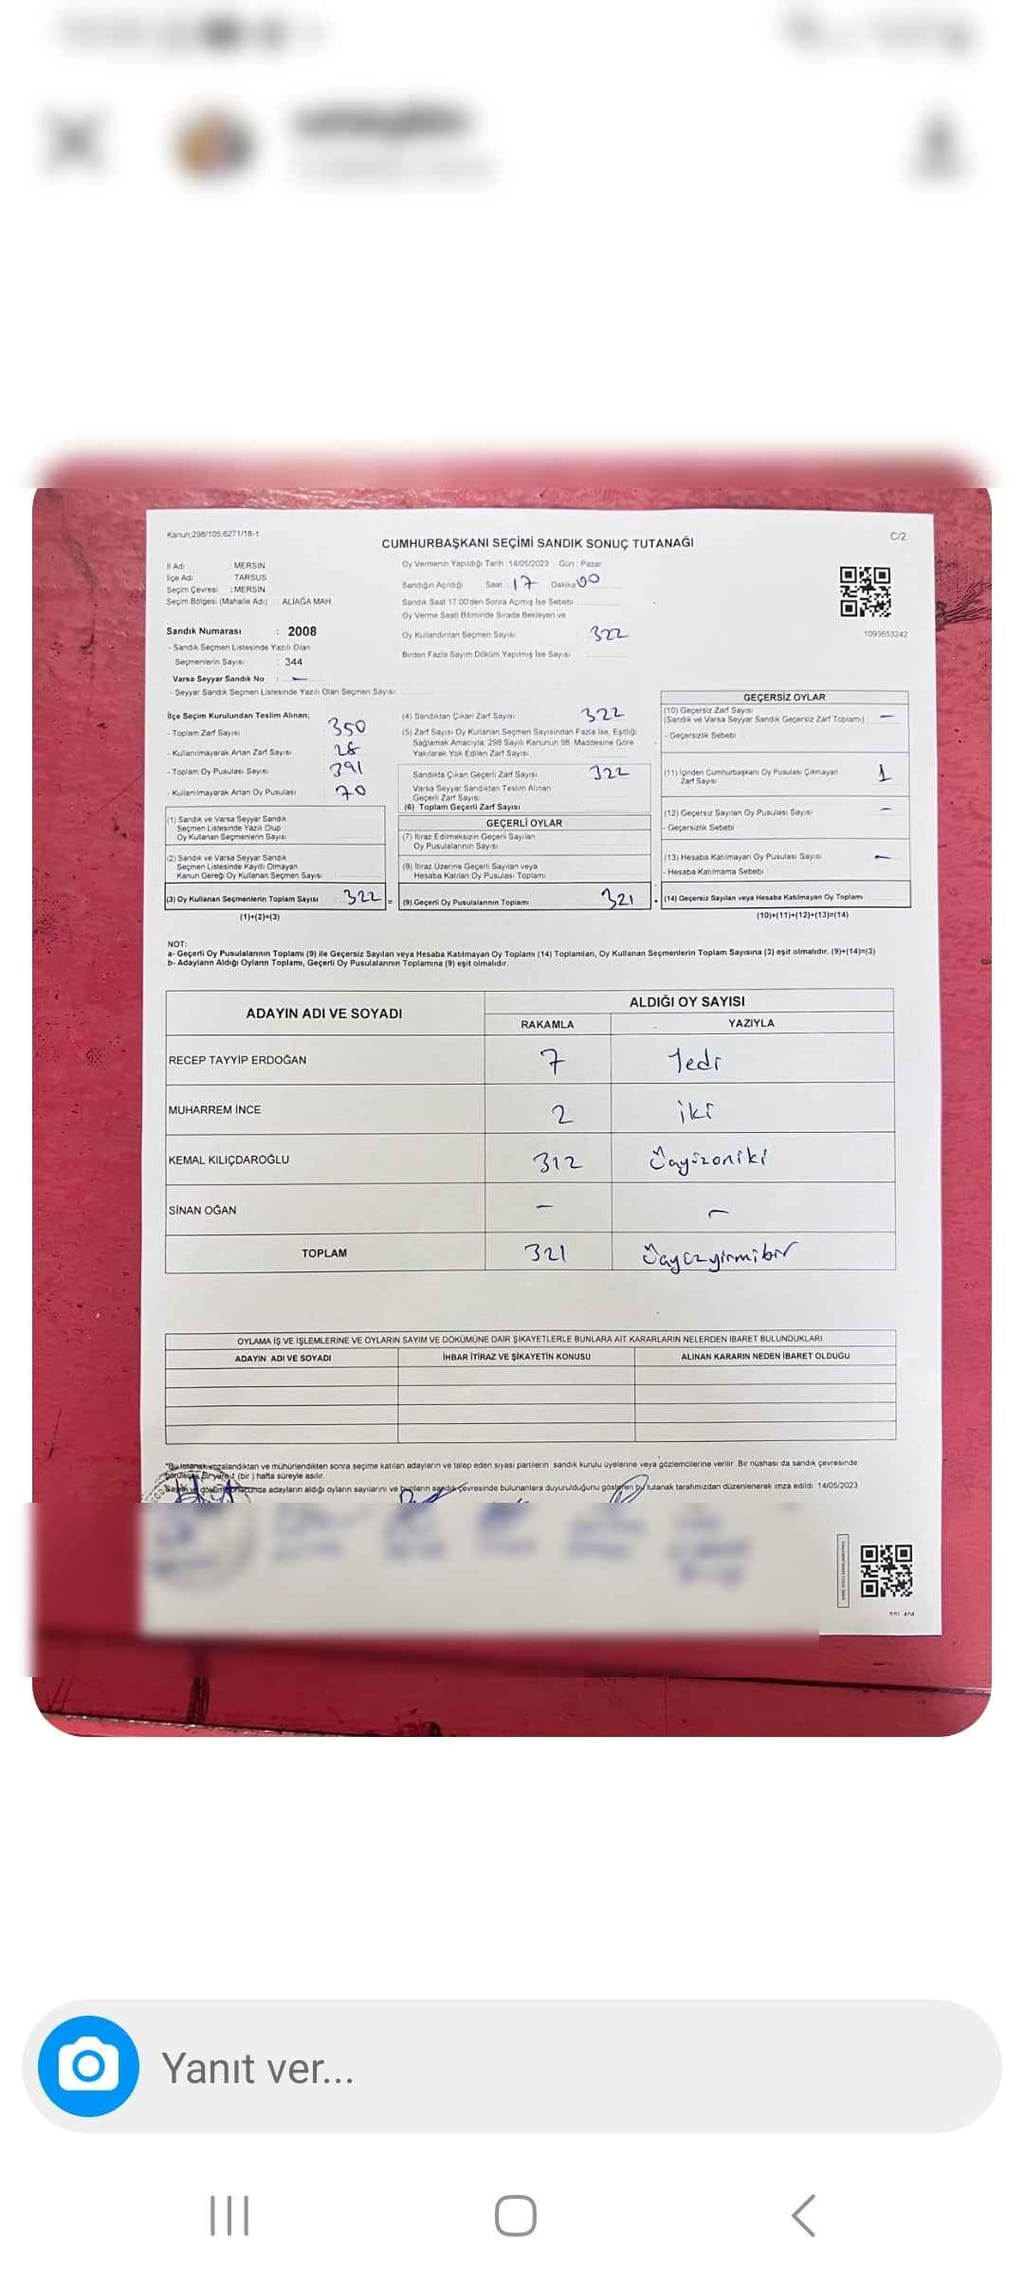 Kanun;298/105;6271/18-1
C/2
CUMHURBAŞKANI SEÇİMİ SANDIK SONUÇ TUTANAĞI
İl Adı : MERSİN
İlçe Adı TARSUS
Seçim Çevresi : MERSİN
Seçim Bölgesi (Mahalle Adı) : ALIAĞA MAH.
Sandık Numarası : 2008
- Sandık Seçmen Listesinde Yazılı Olan
Seçmenlerin Sayısı : 344
Varsa Seyyar Sandık No : –
- Seyyar Sandık Seçmen Listesinde Yazılı Olan Seçmen Sayısı
Oy Vermenin Yapıldığı Tarih :14/05/2023 Gün : Pazar
Sandığın Açıldığı Saat : 17 Dakika 00
Sandık Saat 17:00'den Sonra Açılmış İse Sebebi
Oy Verme Saati Bitiminde Sırada Bekleyen ve
Oy Kullandırılan Seçmen Sayısı 322
Birden Fazla Sayım Döküm Yapılmış İse Sayısı
1093653242
İlçe Seçim Kurulundan Teslim Alınan;
- Toplam Zarf Sayısı 350
- Kullanılmayarak Artan Zarf Sayısı 28
- Toplam Oy Pusulası Sayısı 391
- Kullanılmayarak Artan Oy Pusulası 70
(1) Sandık ve Varsa Seyyar Sandık
Seçmen Listesinde Yazılı Olup
Oy Kullanan Seçmenlerin Sayısı
(2) Sandık ve Varsa Seyyar Sandık
Seçmen Listesinde Kayıtlı Olmayan
Kanun Gereği Oy Kullanan Seçmen Sayısı
(3) Oy Kullanan Seçmenlerin Toplam Sayısı 322
(1)+(2)=(3)
(4) Sandıktan Çıkan Zarf Sayısı 322
(5) Zarf Sayısı Oy Kullanan Seçmen Sayısından Fazla İse, Eşitliği
Sağlamak Amacıyla; 298 Sayılı Kanunun 98. Maddesine Göre
Yakılarak Yok Edilen Zarf Sayısı
Sandıkta Çıkan Geçerli Zarf Sayısı 322
Varsa Seyyar Sandıktan Teslim Alınan
Geçerli Zarf Sayısı
(6) Toplam Geçerli Zarf Sayısı
GEÇERLİ OYLAR
(7) İtiraz Edilmeksizin Geçerli Sayılan
Oy Pusulalarının Sayısı
(8) İtiraz Üzerine Geçerli Sayılan veya
Hesaba Katılan Oy Pusulası Toplamı
= (9) Geçerli Oy Pusulalarının Toplamı 321
GEÇERSİZ OYLAR
(10) Geçersiz Zarf Sayısı –
(Sandık ve Varsa Seyyar Sandık Geçersiz Zarf Toplamı)
- Geçersizlik Sebebi
(11) İçinden Cumhurbaşkanı Oy Pusulası Çıkmayan 1
Zarf Sayısı
(12) Geçersiz Sayılan Oy Pusulası Sayısı –
- Geçersizlik Sebebi
(13) Hesaba Katılmayan Oy Pusulası Sayısı –
- Hesaba Katılmama Sebebi
(14) Geçersiz Sayılan veya Hesaba Katılmayan Oy Toplamı
(10)+(11)+(12)+(13)=(14)
NOT:
a- Geçerli Oy Pusulalarının Toplamı (9) ile Geçersiz Sayılan veya Hesaba Katılmayan Oy Toplamı (14) Toplamları, Oy Kullanan Seçmenlerin Toplam Sayısına (3) eşit olmalıdır. (9)+(14)=(3)
b- Adayların Aldığı Oyların Toplamı, Geçerli Oy Pusulalarının Toplamına (9) eşit olmalıdır.
ADAYIN ADI VE SOYADI ALDIĞI OY SAYISI
RAKAMLA YAZIYLA
RECEP TAYYİP ERDOĞAN 7 Yedi
MUHARREM İNCE 2 iki
KEMAL KILIÇDAROĞLU 312 Üçyüzoniki
SİNAN OĞAN – –
TOPLAM 321 Üçyüzyirmibir
OYLAMA İŞ VE İŞLEMLERİNE VE OYLARIN SAYIM VE DÖKÜMÜNE DAİR ŞİKAYETLERLE BUNLARA AİT KARARLARIN NELERDEN İBARET BULUNDUKLARI
ADAYIN ADI VE SOYADI İHBAR İTİRAZ VE ŞİKAYETİN KONUSU ALINAN KARARIN NEDEN İBARET OLDUĞU
"Bu tutanak imzalandıktan ve mühürlendikten sonra seçime katılan adayların ve talep eden siyasi partilerin sandık kurulu üyelerine veya gözlemcilerine verilir. Bir nüshası da sandık çevresinde
görülecek bir yere 1 (bir ) hafta süreyle asılır.
adayların aldığı oyların sayılarını ve bunların sandık çevresinde bulunanlara duyurulduğunu gösteren bu tutanak tarafımızdan düzenlenerek imza edildi. 14/05/2023
Yanıt ver...